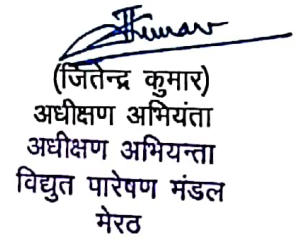 Kumar
(जितेन्द्र कुमार)
अधीक्षण अभियंता
अधीक्षण अभियन्ता
विद्युत पारेषण मंडल
मेरठ